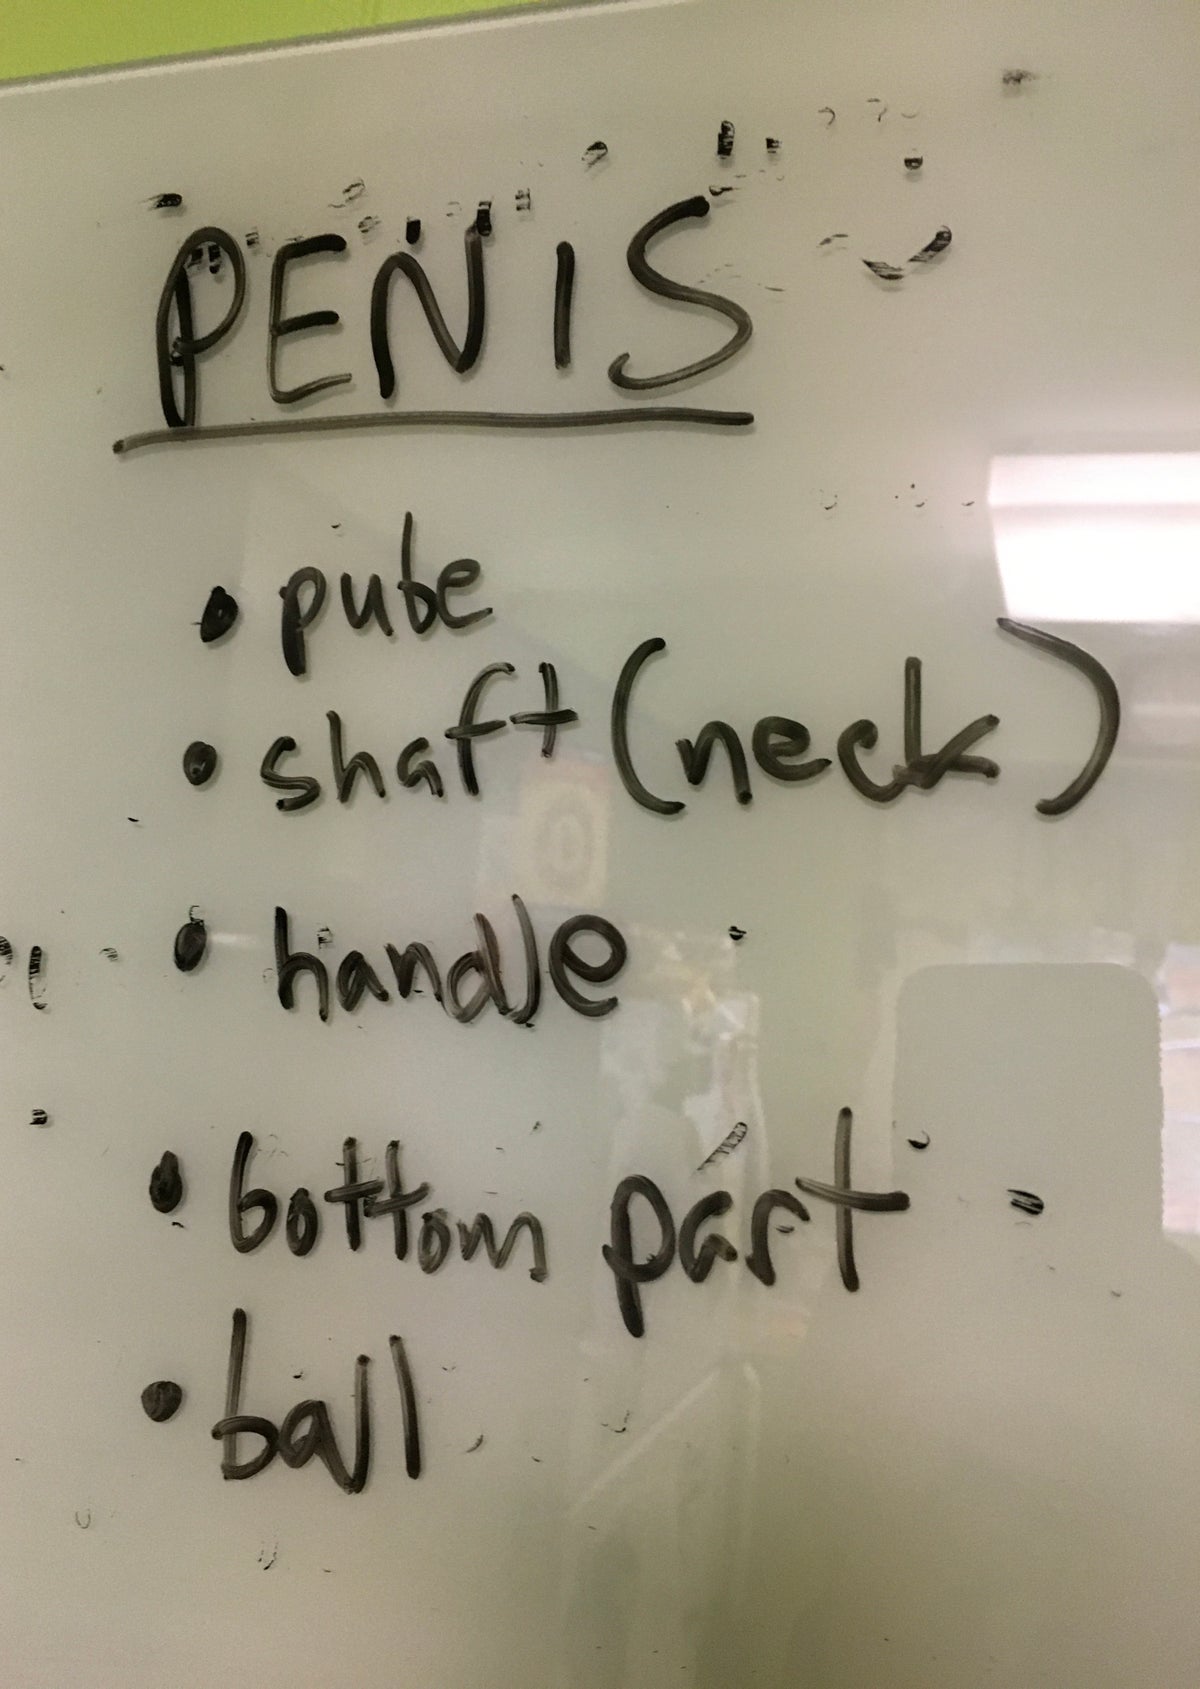 PENIS
• pube
• shaft (neck)
• handle
• bottom part
• ball